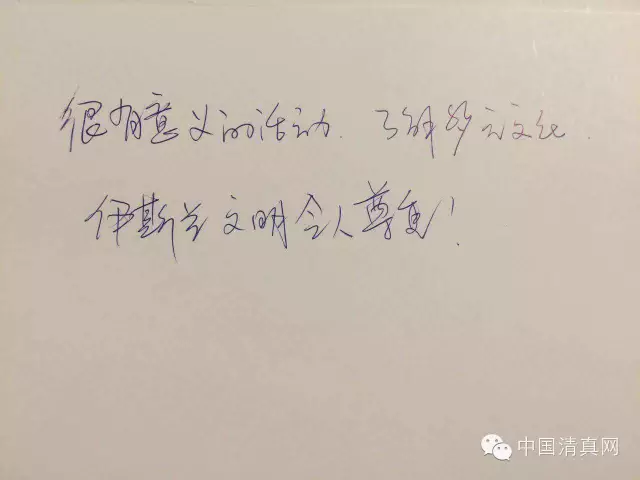 很有意义的活动. 了解多元文化.
伊斯兰文明令人尊重!
中国清真网